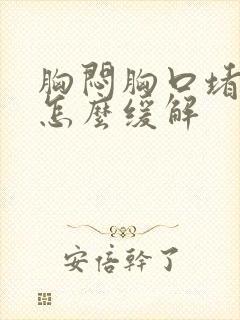 胸悶胸口堵
怎麼緩解
安倍幹了